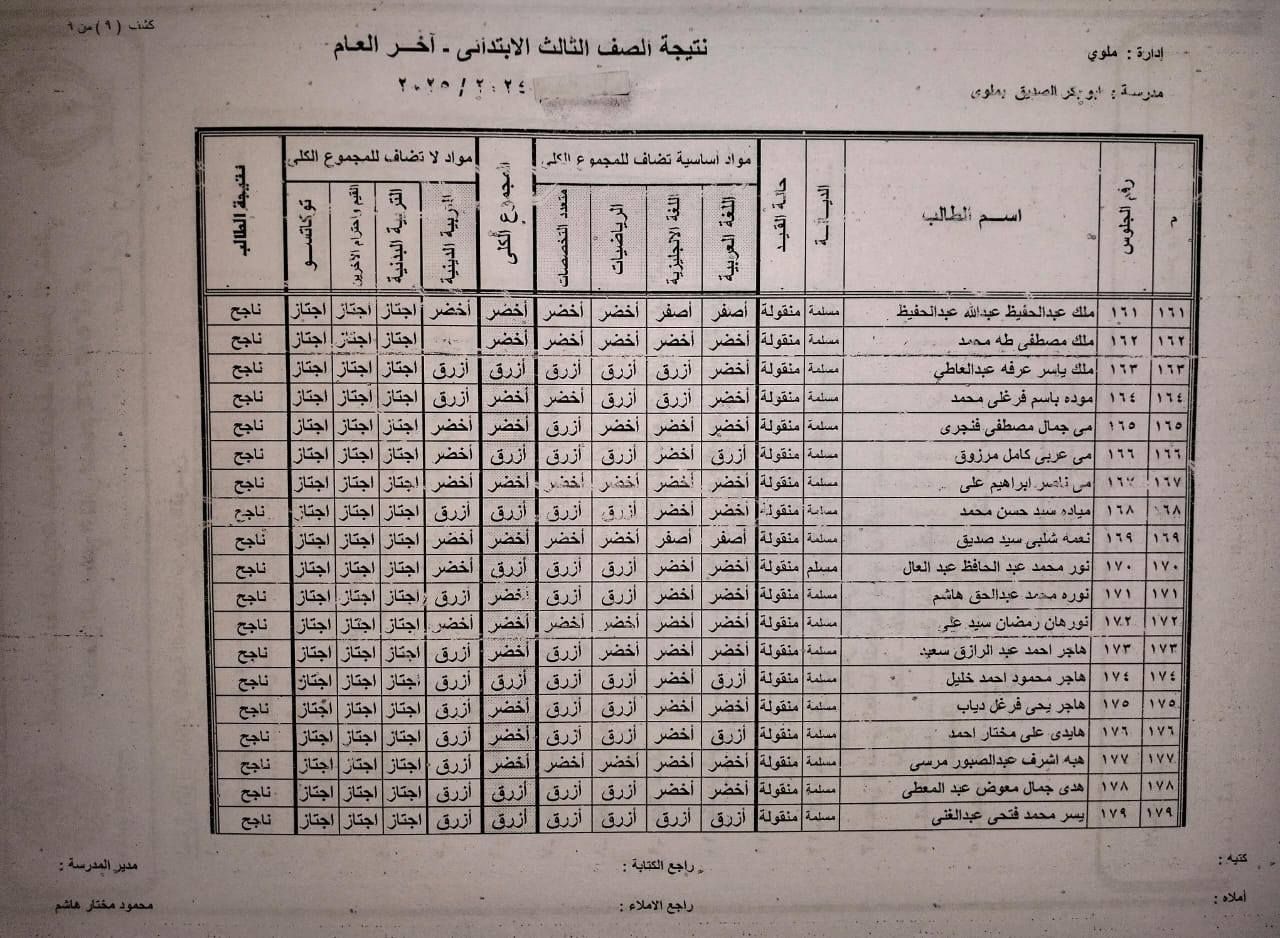 كشف ( ٩ ) من ٩
إدارة : ملوي
نتيجة الصف الثالث الابتدائى - آخر العام
مدرسة : ابو بكر الصديق بملوى
٢٠٢٤ / ٢٠٢٥
م رقم الجلوس اسم الطالب الديانة حالة القيد مواد أساسية تضاف للمجموع الكلى المجموع الكلى مواد لا تضاف للمجموع الكلى نتيجة الطالب
اللغة العربية اللغة الانجليزية الرياضيات متعدد التخصصات التربية الدينية التربية البدنية القيم واحترام الآخرين توكاتسو
١٦١ ١٦١ ملك عبدالحفيظ عبدالله عبدالحفيظ مسلمة منقولة أصفر أصفر أخضر أخضر أخضر أخضر اجتاز اجتاز اجتاز ناجح
١٦٢ ١٦٢ ملك مصطفى طه محمد مسلمة منقولة أخضر أخضر أخضر أخضر أخضر اجتاز اجتاز اجتاز ناجح
١٦٣ ١٦٣ ملك ياسر عرفه عبدالعاطي مسلمة منقولة أخضر أزرق أزرق أزرق أزرق أزرق اجتاز اجتاز اجتاز ناجح
١٦٤ ١٦٤ موده باسم فرغلى محمد مسلمة منقولة أخضر أزرق أزرق أخضر أخضر أزرق اجتاز اجتاز اجتاز ناجح
١٦٥ ١٦٥ مى جمال مصطفى فنجرى مسلمة منقولة أخضر أخضر أخضر أزرق أخضر أخضر اجتاز اجتاز اجتاز ناجح
١٦٦ ١٦٦ مى عربى كامل مرزوق مسلمة منقولة أزرق أخضر أزرق أزرق أزرق أخضر اجتاز اجتاز اجتاز ناجح
١٦٧ ١٦٧ مى ناصر ابراهيم على مسلمة منقولة أخضر أخضر أخضر أخضر أخضر أخضر اجتاز اجتاز اجتاز ناجح
١٦٨ ١٦٨ مياده سيد حسن محمد مسلمة منقولة أخضر أخضر أزرق أزرق أزرق أزرق اجتاز اجتاز اجتاز ناجح
١٦٩ ١٦٩ نعمه شلبى سيد صديق مسلمة منقولة أصفر أصفر أخضر أخضر أخضر أخضر اجتاز اجتاز اجتاز ناجح
١٧٠ ١٧٠ نور محمد عبد الحافظ عبد العال مسلم منقولة أخضر أخضر أزرق أزرق أزرق أخضر اجتاز اجتاز اجتاز ناجح
١٧١ ١٧١ نوره محمد عبدالحق هاشم مسلمة منقولة أخضر أخضر أخضر أزرق أخضر أزرق اجتاز اجتاز اجتاز ناجح
١٧٢ ١٧٢ نورهان رمضان سيد على مسلمة منقولة أخضر أخضر أخضر أخضر أخضر أخضر اجتاز اجتاز اجتاز ناجح
١٧٣ ١٧٣ هاجر احمد عبد الرازق سعيد مسلمة منقولة أخضر أخضر أزرق أزرق أخضر أزرق اجتاز اجتاز اجتاز ناجح
١٧٤ ١٧٤ هاجر محمود احمد خليل مسلمة منقولة أزرق أخضر أزرق أزرق أزرق أزرق اجتاز اجتاز اجتاز ناجح
١٧٥ ١٧٥ هاجر يحى فرغل دياب مسلمة منقولة أخضر أخضر أزرق أزرق أخضر أزرق اجتاز اجتاز اجتاز ناجح
١٧٦ ١٧٦ هايدى على مختار احمد مسلمة منقولة أزرق أخضر أزرق أزرق أزرق أزرق اجتاز اجتاز اجتاز ناجح
١٧٧ ١٧٧ هبه اشرف عبدالصبور مرسى مسلمة منقولة أخضر أخضر أخضر أخضر أخضر أزرق اجتاز اجتاز اجتاز ناجح
١٧٨ ١٧٨ هدى جمال معوض عبد المعطى مسلمة منقولة أخضر أزرق أزرق أخضر أزرق أزرق اجتاز اجتاز اجتاز ناجح
١٧٩ ١٧٩ يسر محمد فتحى عبدالغنى مسلمة منقولة أزرق أزرق أزرق أزرق أزرق أزرق اجتاز اجتاز اجتاز ناجح
كتبه : راجع الكتابة : مدير المدرسة :
أملاه : راجع الاملاء : محمود مختار هاشم